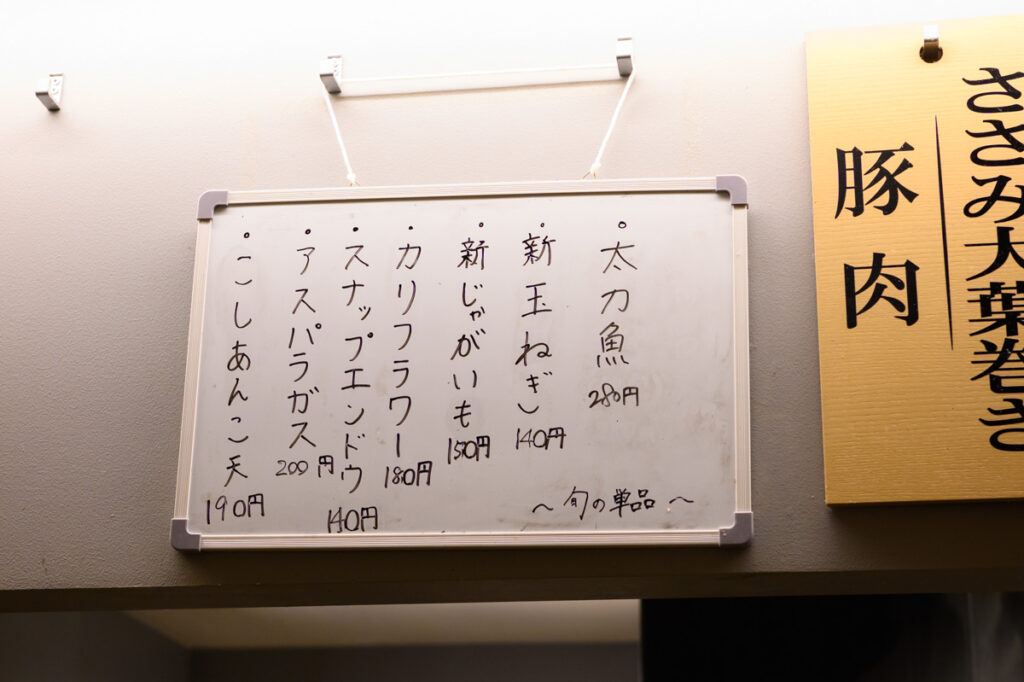 ささみ大葉巻き
豚肉
・太刀魚 280円
・新玉ねぎ 140円
・新じゃがいも 150円
・カリフラワー 180円
・スナップエンドウ 140円
・アスパラガス 200円
・こしあんこ天 190円
～旬の単品～